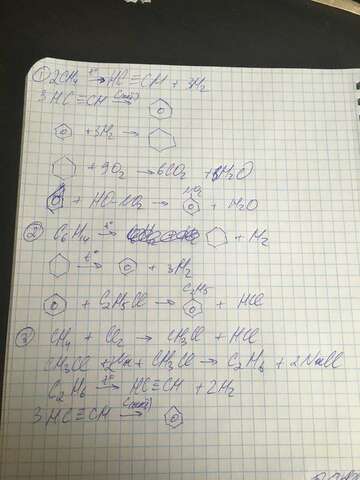 ① 2CH₄ —t°→ HC≡CH + 3H₂
3 HC≡CH —C(акт)→ ⌬
⌬ + 3H₂ → ⬡
⬡ + 9O₂ → 6CO₂ + 6H₂O
⌬ + HO-NO₂ → ⌬NO₂ + H₂O
② C₆H₁₄ —t°→ ⬡ + H₂
⬡ —t°→ ⌬ + 3H₂
⌬ + C₂H₅Cl → ⌬C₂H₅ + HCl
③ CH₄ + Cl₂ → CH₃Cl + HCl
CH₃Cl + 2Na + CH₃Cl → C₂H₆ + 2NaCl
C₂H₆ —t°→ HC≡CH + 2H₂
3HC≡CH —C(акт)→ ⌬